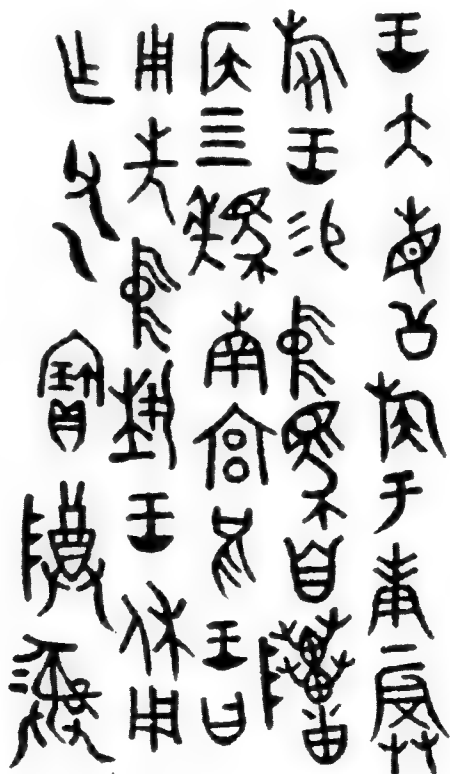 王大省公族于庚
旅王易中馬自
侯四南宮兄王曰
用先中埶王休用
乍父乙寶尊彝